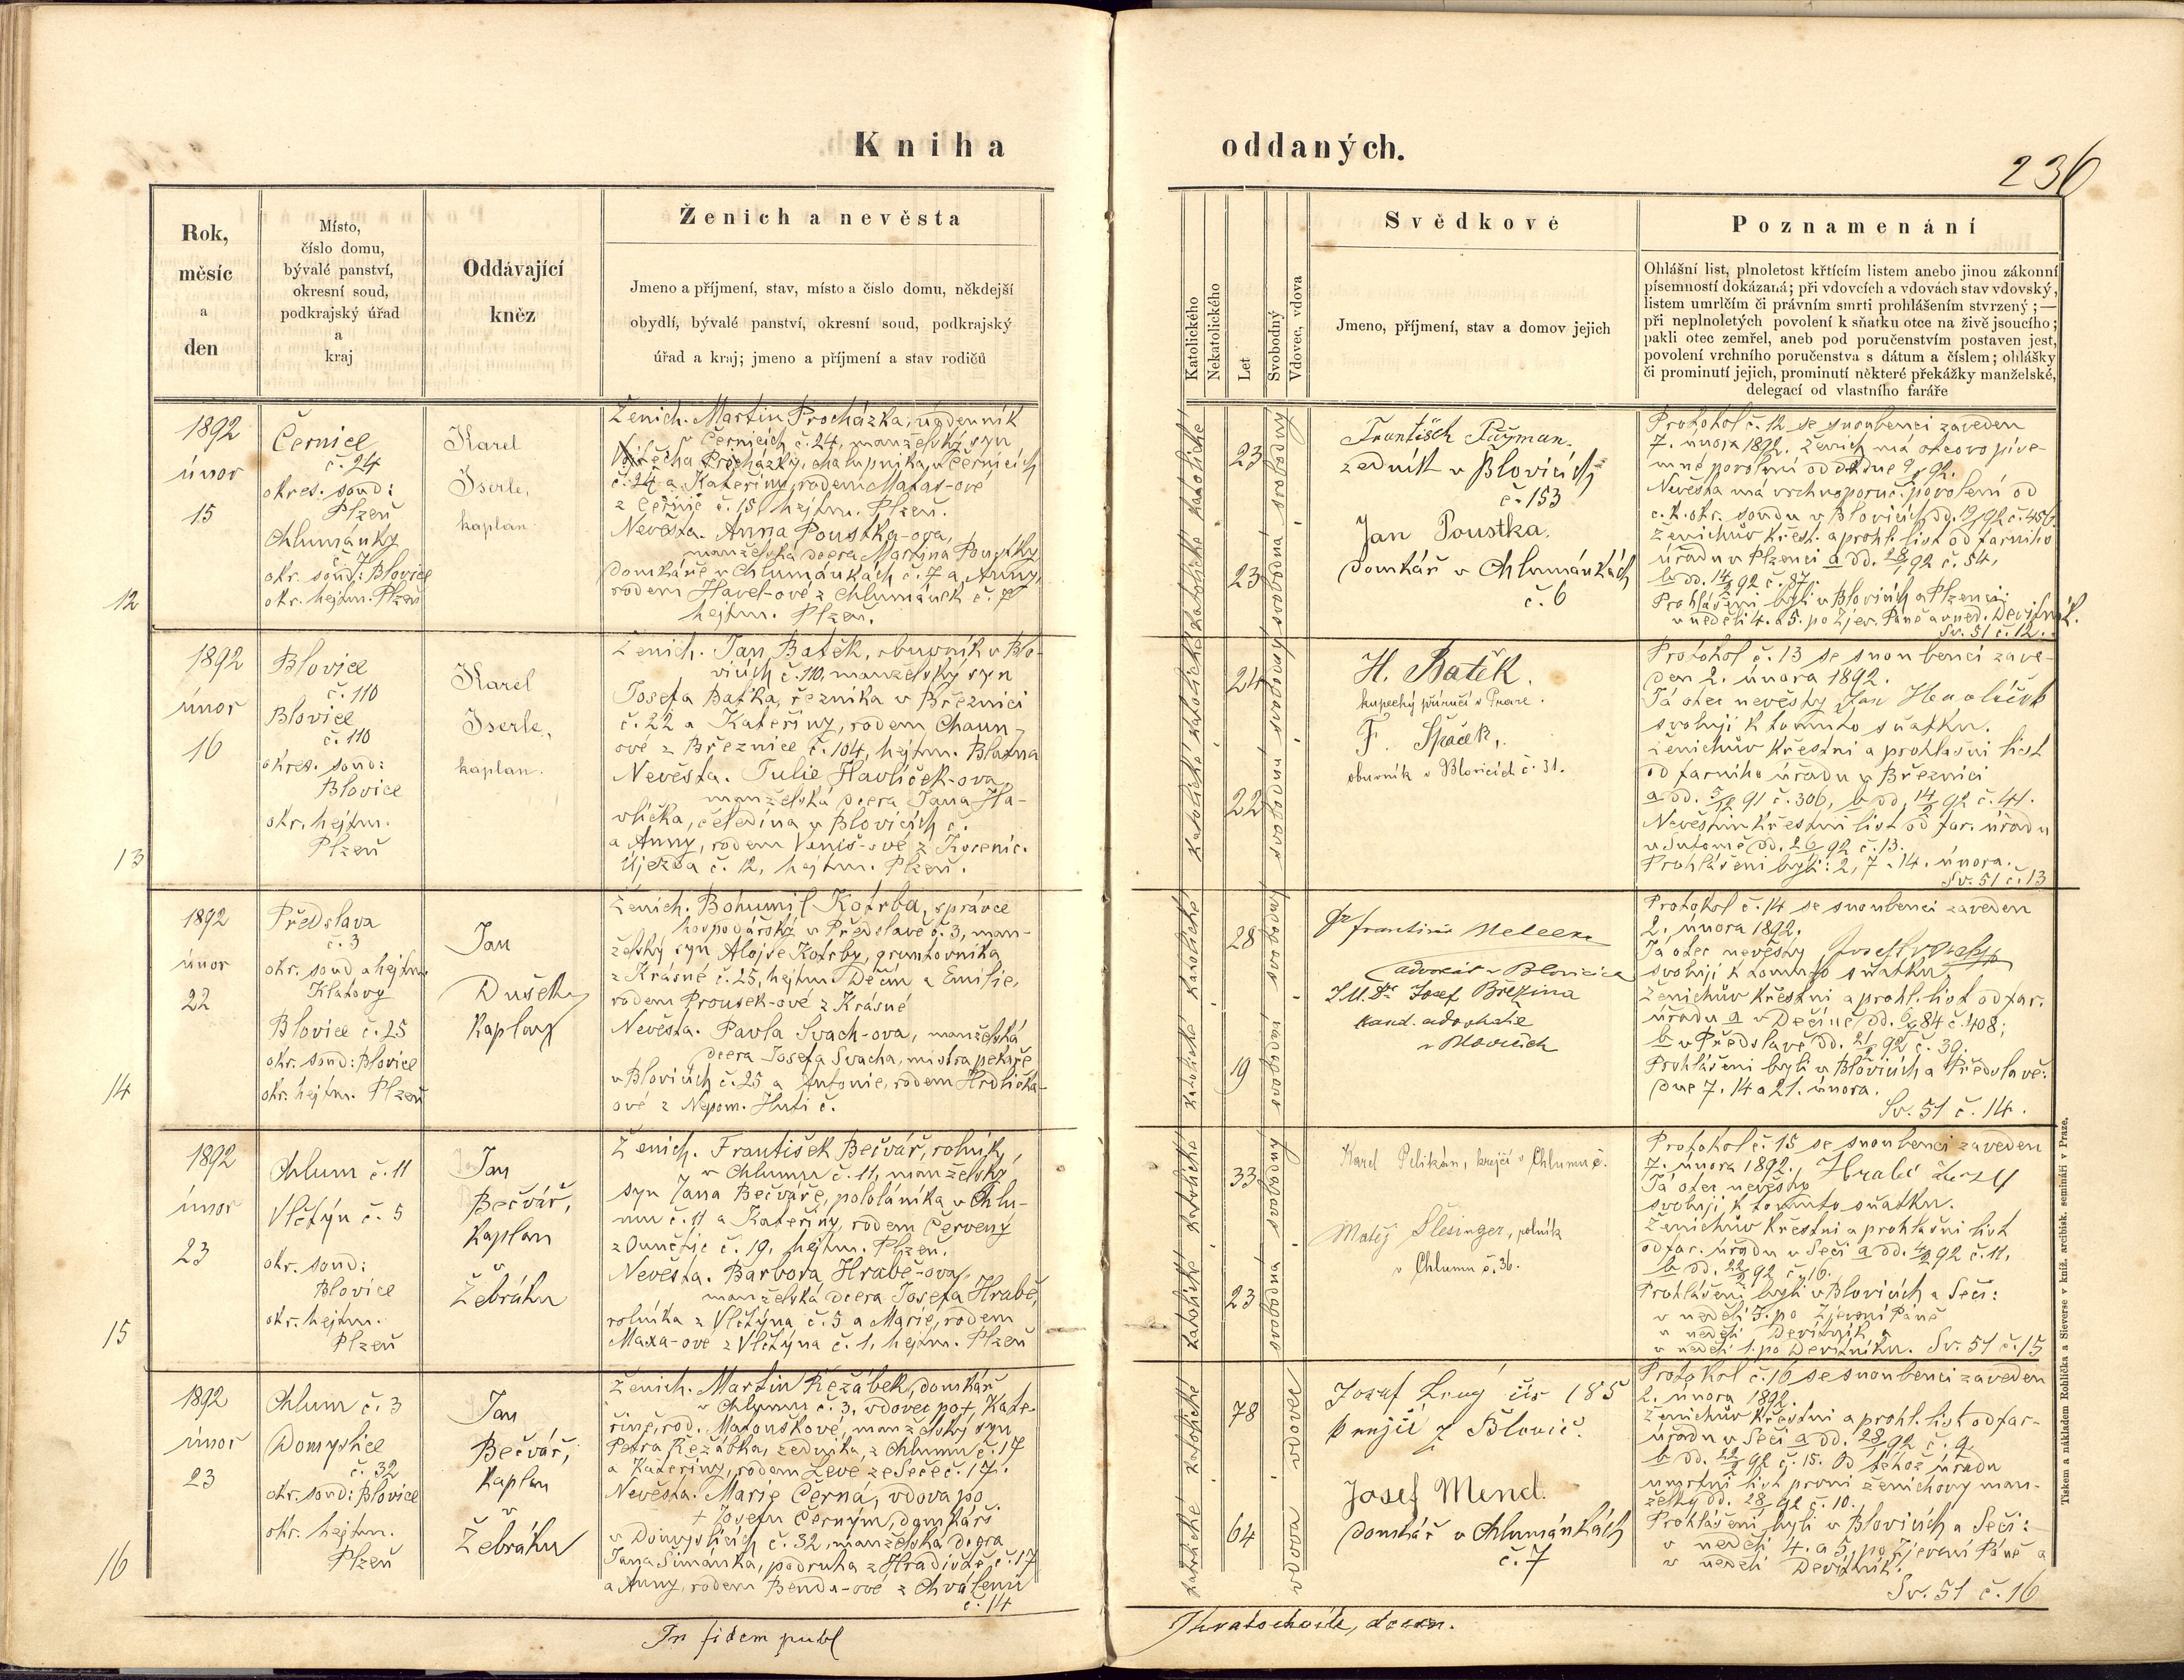 Kniha
oddaných.
236
Rok,
měsíc
a
den
Místo,
číslo domu,
bývalé panství,
okresní soud,
podkrajský úřad
a
kraj
Oddávající
kněz
Ženich a nevěsta
Jmeno a příjmení, stav, místo a číslo domu, někdejší
obydlí, bývalé panství, okresní soud, podkrajský
úřad a kraj; jmeno a příjmení a stav rodičů
Katolického
Nekatolického
Let
Svobodný
Vdovec, vdova
Svědkové
Jmeno, příjmení, stav a domov jejich
Poznamenání
Ohlášní list, plnoletost křtícím listem anebo jinou zákonní
písemností dokázaná; při vdovcích a vdovách stav vdovský,
listem umrlčím či právním smrti prohlášením stvrzený;—
při neplnoletých povolení k sňatku otce na živě jsoucího;
pakli otec zemřel, aneb pod poručenstvím postaven jest,
povolení vrchního poručenstva s dátum a číslem; ohlášky
či prominutí jejich, prominutí některé překážky manželské,
delegací od vlastního faráře
12
1892
únor
15
Černice
č. 24
okres. soud:
Plzeň
Chlumánky
č. 7
okr. soud: Blovice
okr. hejtm. Plzeň
Karel
Iserle,
kaplan.
Ženich. Martin Procházka,
v Černicích č. 24, manželský syn
Vojtěcha Procházky, chalupníka v Černicích
č. 24 a Kateřiny, rodem Matas-ové
z Černic č. 15, hejtm. Plzeň.
Nevěsta. Anna Poustka-ova,
manželská dcera Martina Poustky
domkáře v Chlumánkách č. 7 a Anny,
rodem Havel-ové z Chlumánek č. 7
hejtm. Plzeň.
katolické katolické
23
23
svobodný
svobodná
František
zedník v Blovicích
č. 153
Jan Poustka.
domkář v Chlumánkách
č. 6
Protokol č. 12 se snoubenci zaveden
7. února 1892. Ženich má otcovo písem-
né povolení
Nevěsta má vrchnoporuč. povolení od
c. k. okr. soudu v Blovicích dd. č. 456
Ženichův křest. a prohl. list od farního
úřadu v Plzenci a dd. 28/1 92 č. 54,
b dd. 14/2 92 č. 87.
Prohlášeni byli v Blovicích a Plzenci:
v neděli 4. a 5. po Zjev. Páně a v ned. Devítník.
Sv. 51 č. 12.
13
1892
únor
16
Blovice
č. 110
Blovice
č. 110
okres. soud:
Blovice
okr. hejtm.
Plzeň
Karel
Iserle,
kaplan.
Ženich. Jan Batěk, obuvník v Blo-
vicích č. 110, manželský syn
Josefa Baťka, řezníka v Březnici
č. 22 a Kateřiny, rodem Chaun-
ové z Březnice č. 104, hejtm. Blatna
Nevěsta. Julie Havlíček-ova,
manželská dcera Jana Ha-
vlíčka, čeledína v Blovicích č.
a Anny, rodem Vaniš-ové z Kocenic.
Újezda č. 12, hejtm. Plzeň.
katolické katolické
24
22
svobodný
svobodná
H. Batěk.
kupecký příručí v Praze.
F. Špaček,
obuvník v Blovicích č. 31.
Protokol č. 13 se snoubenci zave-
den 2. února 1892.
Já otec nevěsty Jan Havlíček
svoluji k tomuto sňatku.
Ženichův křestní a prohlašní list
od farního úřadu v Březnici
a dd. 5/12 91 č. 306, b dd. 14/2 92 č. 41.
Nevěstin křestní list od far. úřadu
dd. 92 č. 13.
Prohlášeni byli: 2, 7. 14. února.
Sv. 51 č. 13
14
1892
únor
22
Předslava
č. 3
okr. soud a hejtm.
Klatovy
Blovice č. 25
okr. soud: Blovice
okr. hejtm. Plzeň
Jan
Dušek,
kaplan
Ženich. Bohumil Kotrba, správce
hospodářský v Předslavě č. 3, man-
želský syn Alojse Kotrby, gruntovníka
z Krásné č. 25, hejtm. Děčín a Emilie,
rodem Prousek-ové z Krásné
Nevěsta. Pavla Svach-ova, manželská
dcera Josefa Svacha, mistra pekaře
v Blovicích č. 25 a Antonie, rodem Hrdlička-
ové z Nepom. Huti č.
katolické katolické
28
19
svobodný
svobodná
František
advokát v Blovicích
J.U.Dr. Josef Březina
kand. advokacie
v Blovicích
Protokol č. 14 se snoubenci zaveden
2. února 1892.
Já otec nevěsty Josef Svach
svoluji k tomuto sňatku.
Ženichův křestní a prohl. list od far.
úřadu a v Děčíně dd. 84 č. 408;
b v Předslavě dd. 21/2 92 č. 39.
Prohlášeni byli v Blovicích a Předslavě:
dne 7. 14 a 21. února.
Sv. 51 č. 14.
15
1892
únor
23
Chlum č. 11
Vlčtýn č. 5
okr. soud:
Blovice
okr. hejtm.
Plzeň
Jan
Bečvář,
kaplan
v
Žebráku
Ženich. František Bečvář, rolník,
v Chlumu č. 11, manželský
syn Jana Bečváře, pololáníka v Chlu-
mu č. 11 a Kateřiny, rodem Červený
z č. 19, hejtm. Plzeň.
Nevěsta. Barbora Hrabě-ova,
manželská dcera Josefa Hrabě,
rolníka z Vlčtýna č. 5 a Marie, rodem
Maxa-ové z Vlčtýna č. 1, hejtm. Plzeň
katolické katolické
33
23
svobodný
svobodná
Karel Pelikán, krejčí v Chlumu č.
Matěj Šlesinger, rolník
v Chlumu č. 36.
Protokol č. 15 se snoubenci zaveden
7. února 1892.
Já otec nevěsty Hrabě
svoluji k tomuto sňatku.
Ženichův křestní a prohlašní list
od far. úřadu v Seči a dd. 4/2 92 č. 11,
b dd. 22/2 92 č. 16.
Prohlášeni byli v Blovicích a Seči:
v neděli 5. po Zjevení Páně
v neděli Devítník a
v neděli 1. po Devítníku. Sv. 51 č. 15
16
1892
únor
23
Chlum č. 3
Domyslice
č. 32
okr. soud: Blovice
okr. hejtm.
Plzeň
Jan
Bečvář,
kaplan
v
Žebráku
Ženich. Martin Řežábek, domkář
v Chlumu č. 3, vdovec po † Kate-
řině, rod. Matouškové, manželský syn
Petra Řežábka, zedníka, z Chlumu č. 17
a Kateřiny, rodem Levé ze Seče č. 17.
Nevěsta. Marie Černá, vdova po
† Josefu Černým, domkáři
v Domyslicích č. 32, manželská dcera
Jana Šimánka, podruha z Hradiště, č. 17
a Anny, rodem Benda-ové z Chválenic
č. 14
katolické katolické
78
64
vdovec
vdova
Josef čís 185
krejčí z Blovic.
Josef Mencl.
domkář v Chlumánkách
č. 7
Protokol č. 16 se snoubenci zaveden
2. února 1892.
Ženichův křestní a prohl. list od far-
úřadu v Seči a dd. 28/1 92 č. 9.
b dd. 22/2 92 č. 15. Od téhož úřadu
úmrtní list první ženichovy man-
želky dd. 28/1 92 č. 10.
Prohlášeni byli v Blovicích a Seči:
v neděli 4. a 5. po Zjevení Páně a
v neděli Devítník.
Sv. 51 č. 16
In fidem publ
Tiskem a nákladem Rohlíčka a Sieverse v kníž. arcibisk. semináři v Praze.